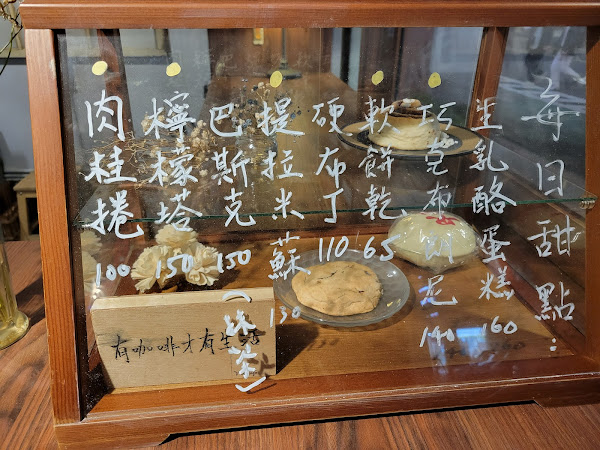 每日甜點：
生乳酪蛋糕 160
巧克布朗尼 140
軟餅乾 65
硬布丁 110
提拉米蘇 130
巴斯克 150（抹茶）
檸檬塔 150
肉桂捲 100
有咖啡才有生活